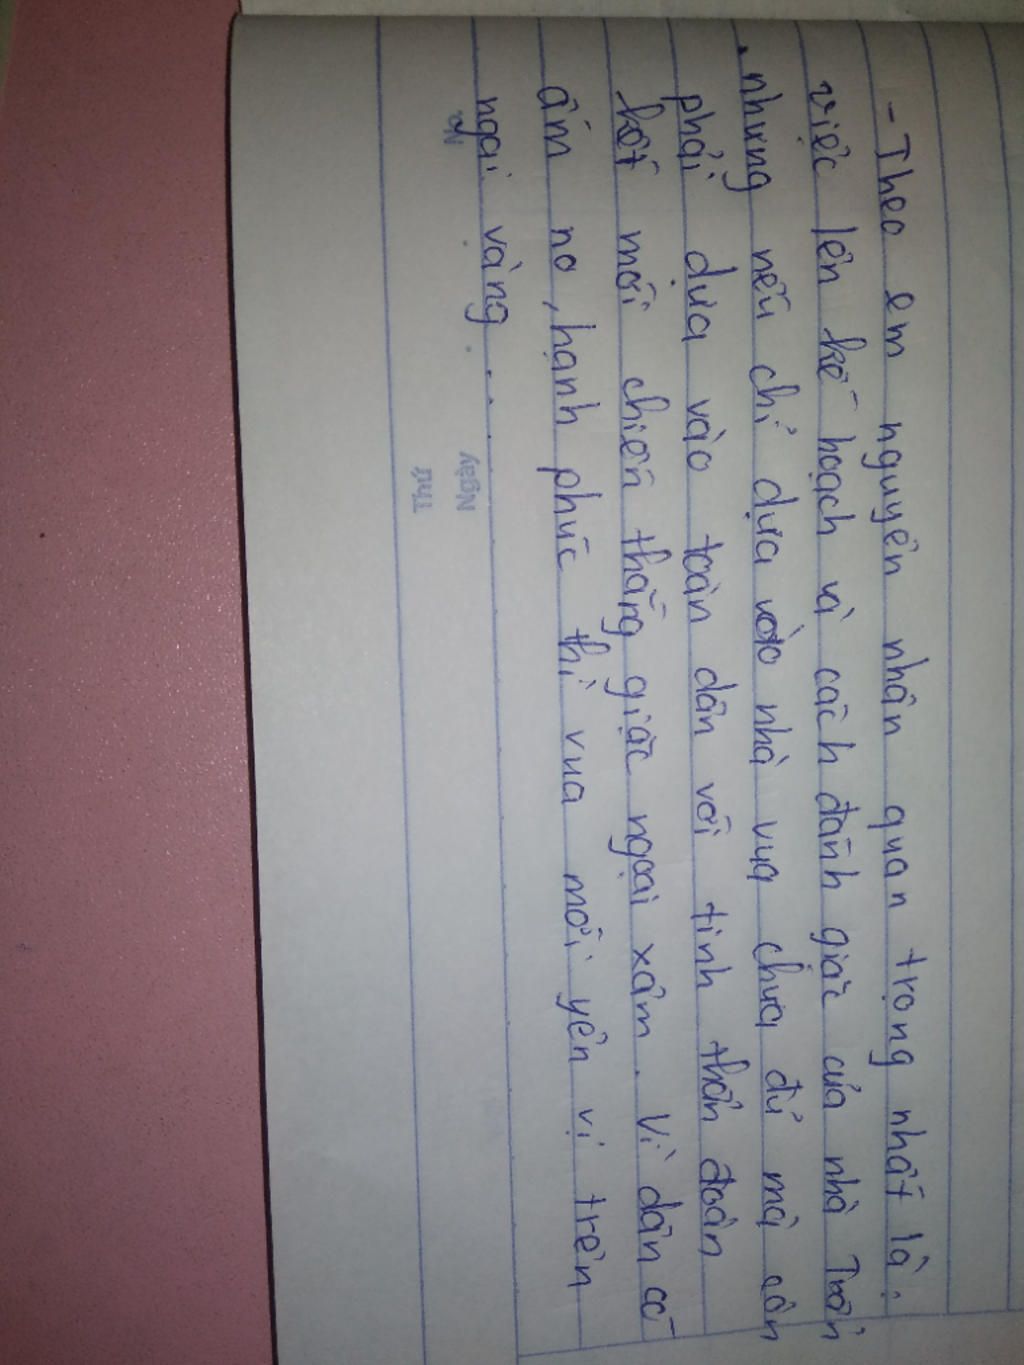 - Theo em nguyên nhân quan trọng nhất là:
việc lên kế hoạch và cách đánh giặc của nhà Trần
nhưng nếu chỉ dựa vào nhà vua chưa đủ mà còn
phải dựa vào toàn dân với tinh thần đoàn
kết mới chiến thắng giặc ngoại xâm. Vì dân có
ấm no, hạnh phúc thì vua mới yên vị trên
ngai vàng...
No
Ngày
Thứ